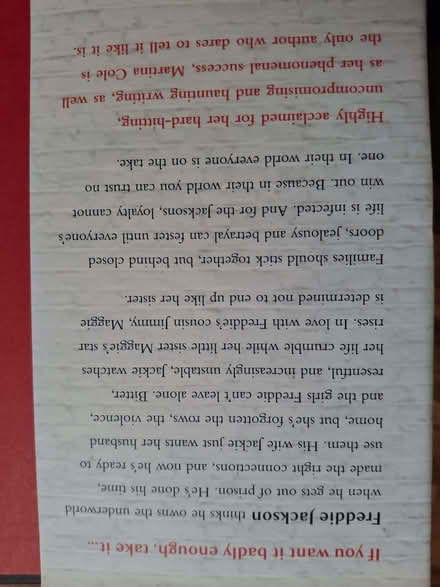 If you want it badly enough, take it...
Freddie Jackson thinks he owns the underworld
when he gets out of prison. He's done his time,
made the right connections, and now he's ready to
use them. His wife Jackie just wants her husband
home, but she's forgotten the rows, the violence,
and the girls Freddie can't leave alone. Bitter,
resentful, and increasingly unstable, Jackie watches
her life crumble while her little sister Maggie's star
rises. In love with Freddie's cousin Jimmy, Maggie
is determined not to end up like her sister.
Families should stick together, but behind closed
doors, jealousy and betrayal can fester until everyone's
life is infected. And for the Jacksons, loyalty cannot
win out. Because in their world you can trust no
one. In their world everyone is on the take.
Highly acclaimed for her hard-hitting,
uncompromising and haunting writing, as well
as her phenomenal success, Martina Cole is
the only author who dares to tell it like it is.